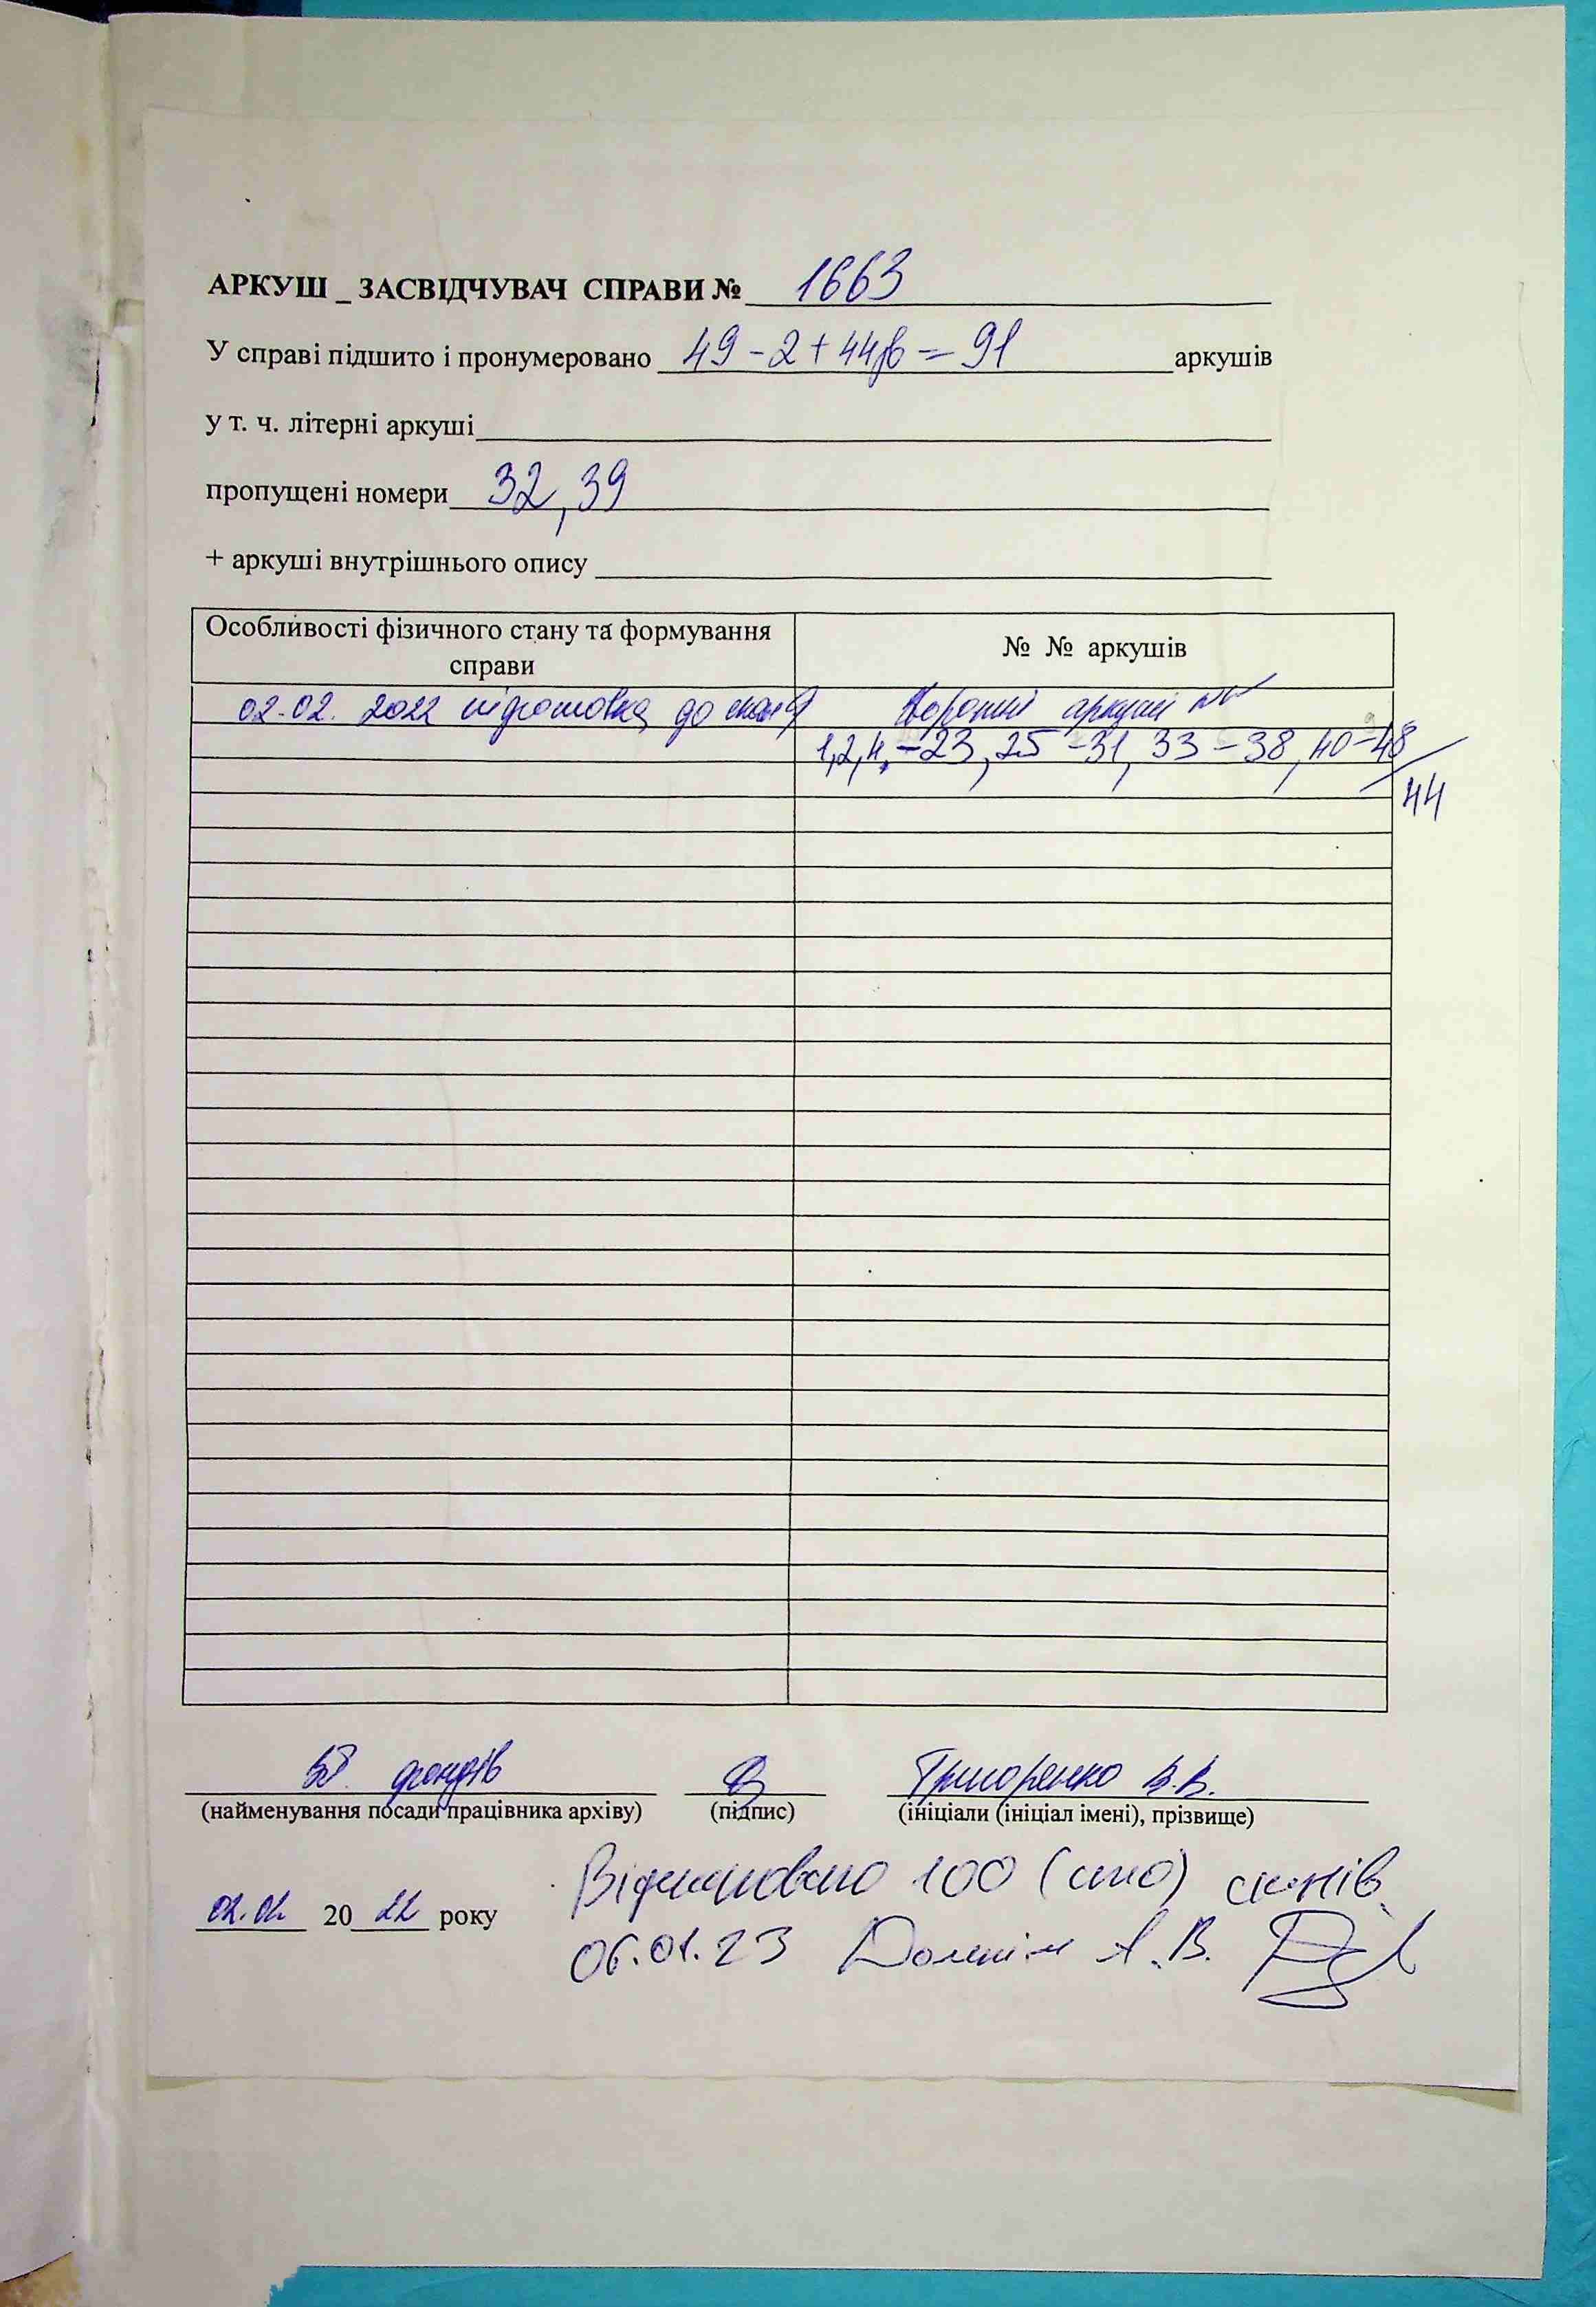 АРКУШ _ ЗАСВІДЧУВАЧ СПРАВИ № 1663
У справі підшито і пронумеровано 49-2+44зв=91 аркушів
у т. ч. літерні аркуші
пропущені номери 32, 39
+ аркуші внутрішнього опису
Особливості фізичного стану та формування справи
№ № аркушів
02.02. 2022 підготовка до скан
Зворотні аркуші №№
1,2,4,-23, 25-31, 33-38, 40-48
44
фондів
Григоренко В.В.
(найменування посади працівника архіву) (підпис) (ініціали (ініціал імені), прізвище)
Відскановано 100 (сто) сканів
02.02 2022 року
06.01.23 А.В.